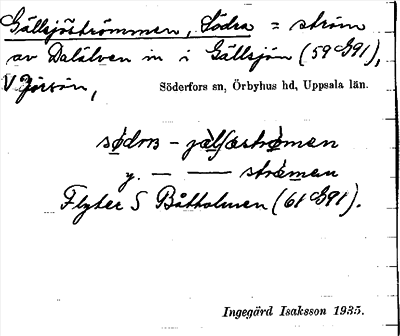 Gällsjöströmmen, Södra = ström
av Dalälven in i Gällsjön (59 G91),
V Jörsön,
Söderfors sn, Örbyhus hd, Uppsala län.
södra - jälsæströmen
y. — —— strömen
Flyter S Båtholmen (61 G91).
Ingegärd Isaksson 1935.